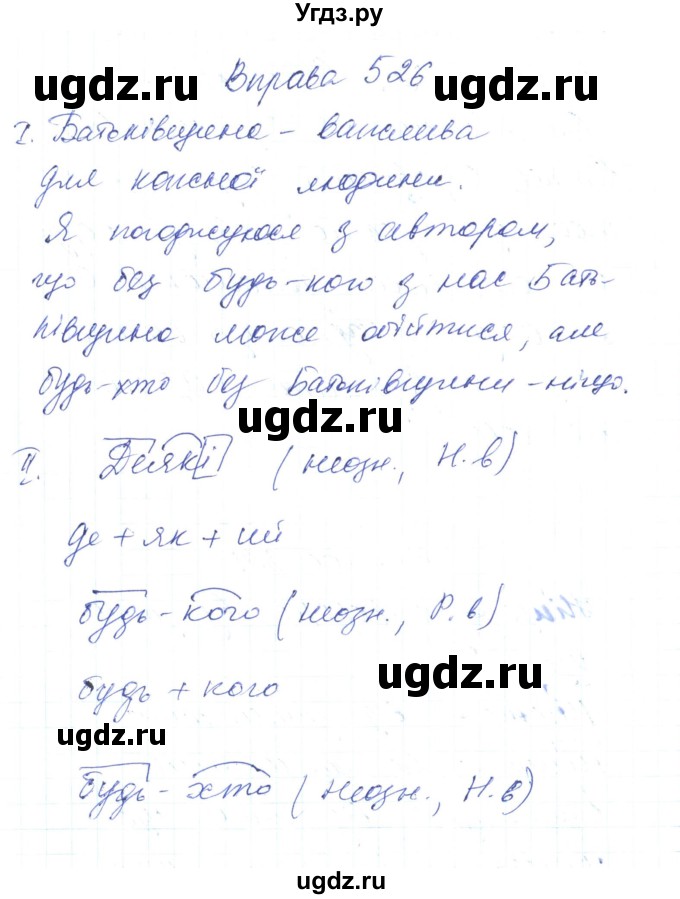 Угдз.ру
ugdz.ru ugdz.ru
Вправа 526
I. Батьківщина – важлива
для кожної людини.
Я погоджуюся з автором,
що без будь-кого з нас Бать-
ківщина може обійтися, але
будь-хто без Батьківщини – ніщо.
ugdz.ru
II. Деякі (неозн., Н.в)
де + як + ий
будь-кого (неозн., Р.в)
ugdz.ru
будь + кого
ugdz.ru
будь-хто (неозн., Н.в)
ugdz.ru